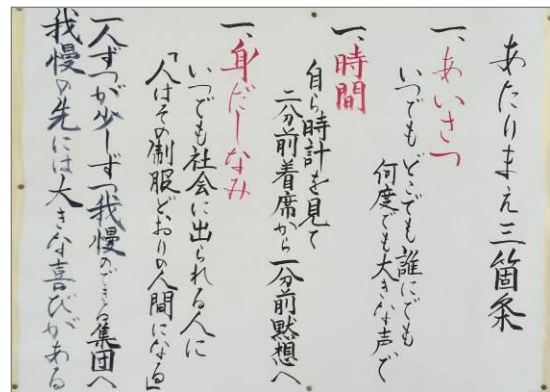 あたりまえ三箇条
一、あいさつ
いつでも どこでも 誰にでも
何度でも大きな声で
一、時間
自ら時計を見て
二分前着席から一分前黙想へ
一、身だしなみ
いつでも社会に出られる人に
「人はその制服どおりの人間になる」
一人ずつが少しずつ我慢のできる集団へ
我慢の先には大きな喜びがある